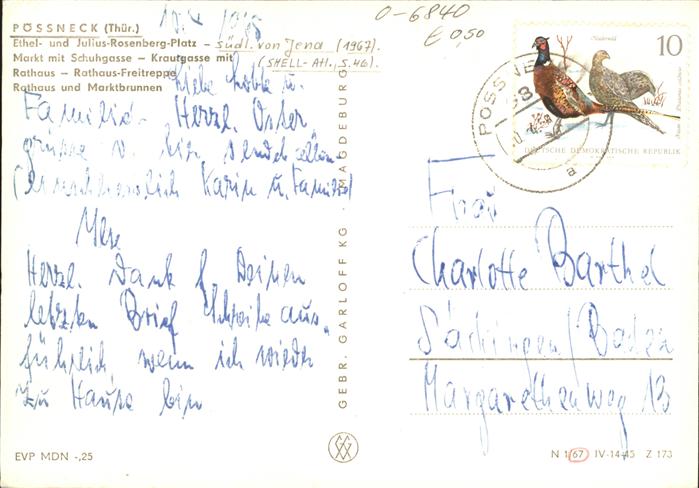 PÖSSNECK (Thür.)
Ethel- und Julius-Rosenberg-Platz - südl. von Jena (1967).
Markt mit Schuhgasse - Krautgasse mit (SHELL-Atl., S. 46).
Rathaus - Rathaus-Freitreppe
Rathaus und Marktbrunnen
Liebe Lotte u.
Familie. Herzl. Oster
grüsse v. hier sendet allen
Karin u. Familie)
Herzl. Dank f Deinen
letzten Brief Schreibe aus-
führlich, wenn ich wieder
zu Hause bin
EVP MDN -,25
GEBR. GARLOFF KG · MAGDEBURG
0-6840
€ 0,50
10
DEUTSCHE DEMOKRATISCHE REPUBLIK
PÖSSNECK
a
Frau
Charlotte Barthel
Säckingen/Baden
Margarethenweg 13
N 1 (67) IV-14-45 Z 173